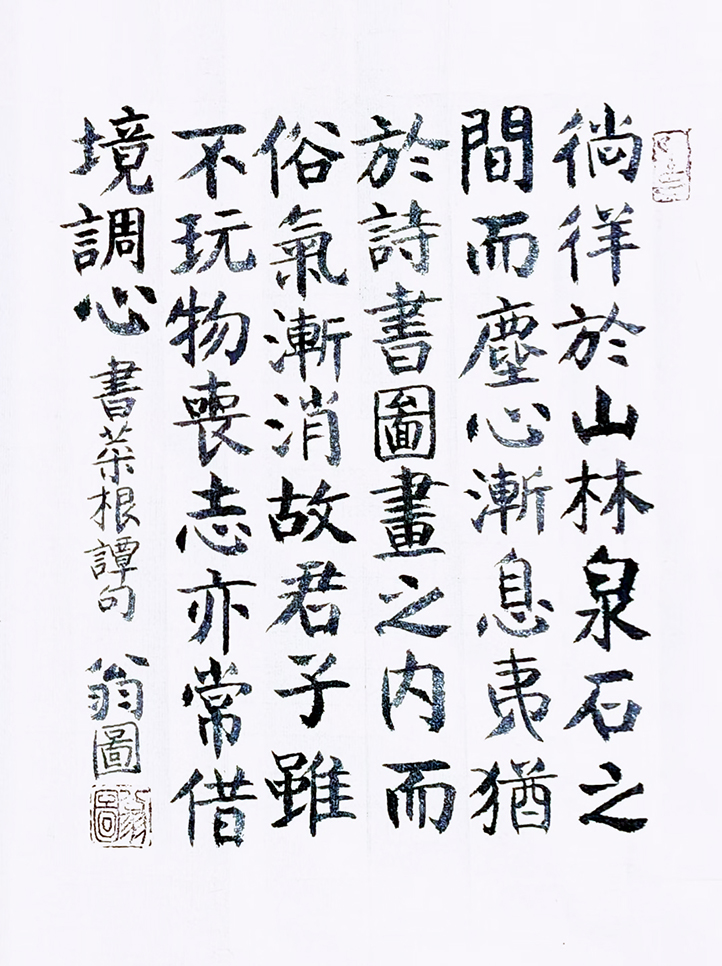 徜徉於山林泉石之
間而塵心漸息夷猶
於詩書圖畫之内而
俗氣漸消故君子雖
不玩物喪志亦常借
境調心 書菜根譚句 翁圖
翁圖